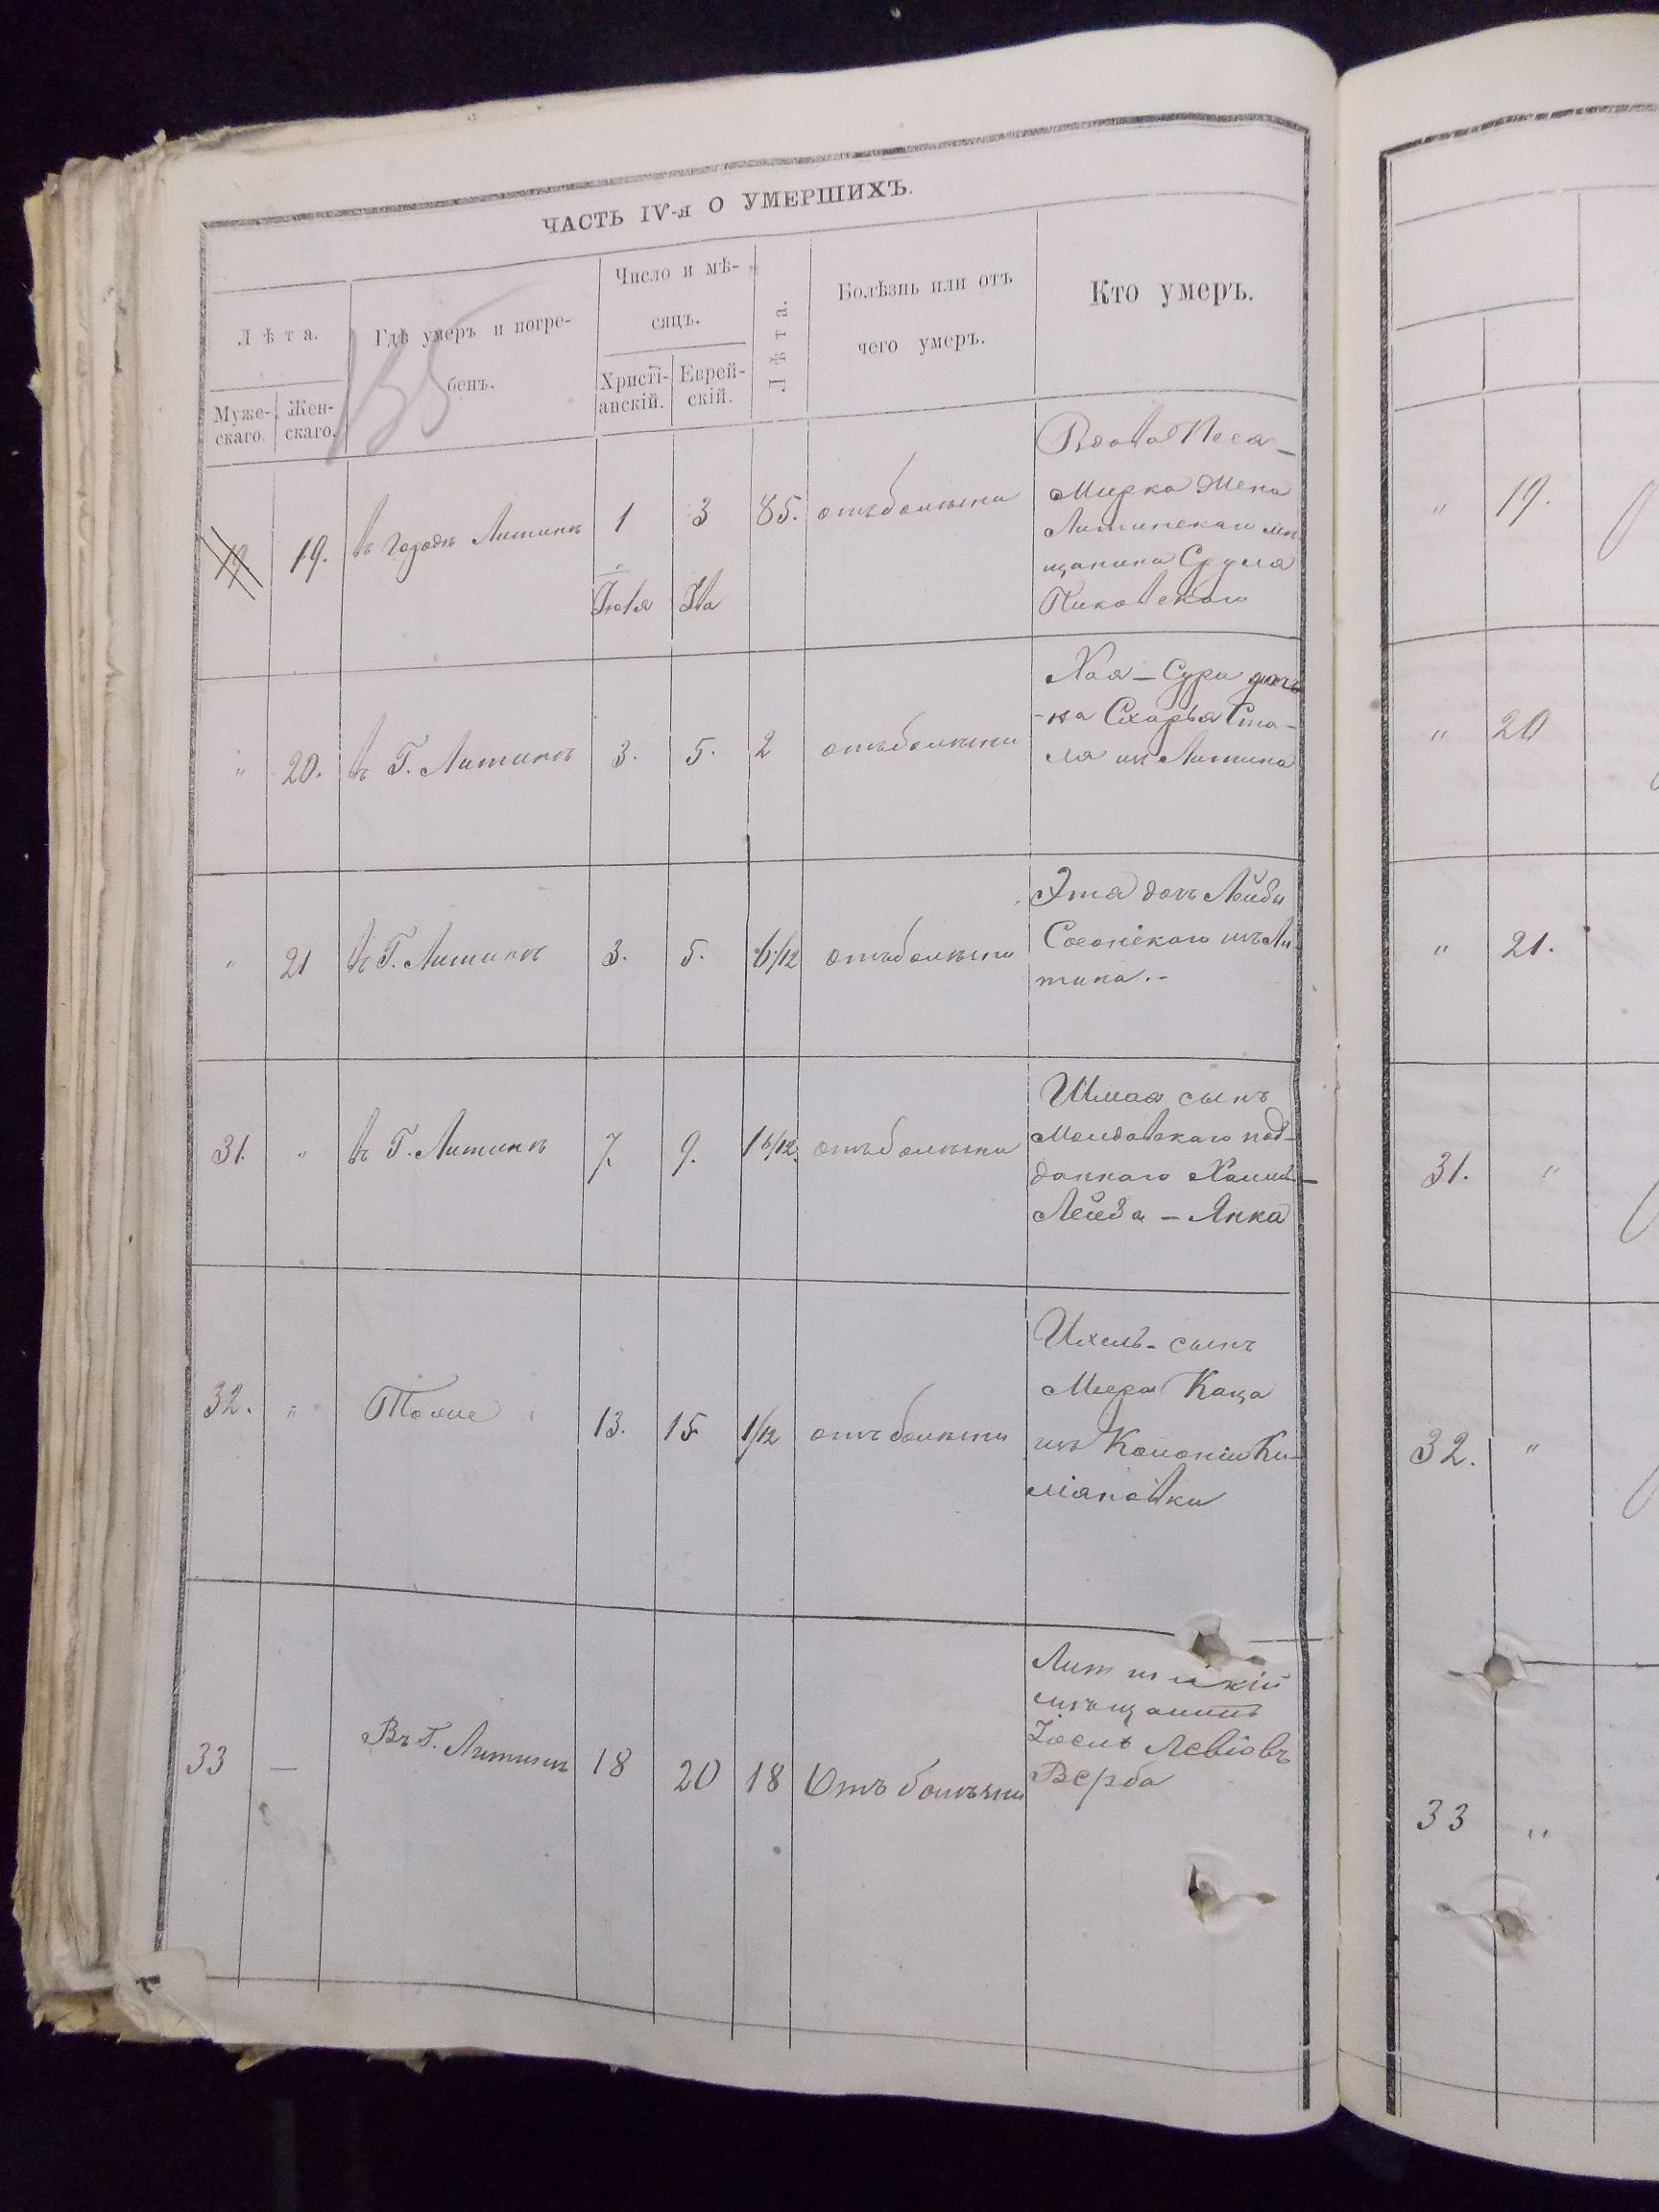 ЧАСТЬ IV-я О УМЕРШИХЪ.
Лѣта.
Муже-
скаго.
Жен-
скаго.
Гдѣ умеръ и погре-
бенъ.
Число и мѣ-
сяцъ.
Христі-
анскій.
Еврей-
скій.
Лѣта.
Болѣзнь или отъ
чего умеръ.
Кто умеръ.
135
19.
въ городѣ Литинѣ
1
Іюля
3
85.
отъ болѣзни
Вдова Песя-
Мирка жена
Литинскаго мѣ
щанина Сруля
Пиковскаго
"
20.
въ Г. Литинѣ
3.
5.
2
отъ болѣзни
Хая-Сура доч
-ка Схарья Ста-
ля изъ Литина
"
21
въ Г. Литинѣ
3.
5.
отъ болѣзни
Эта дочь Лейбы
изъ Ли
тина.-
31.
"
въ Г. Литинѣ
7.
9.
1 6/12.
отъ болѣзни
Шмая сынъ
Молдавскаго под-
даннаго
Лейба - Янка
32.
"
Тоже
13.
15
1/12
отъ болѣзни
Ихель-сынъ
Меера Каца
изъ Колоніи Ку-
ліановки
33
—
Въ Г. Литинѣ
18
20
18
Отъ болѣзни
Литинскій
мѣщанинъ
Іосль Левіовъ
Верба
"
19.
"
20
"
21.
31.
"
32.
"
33
"